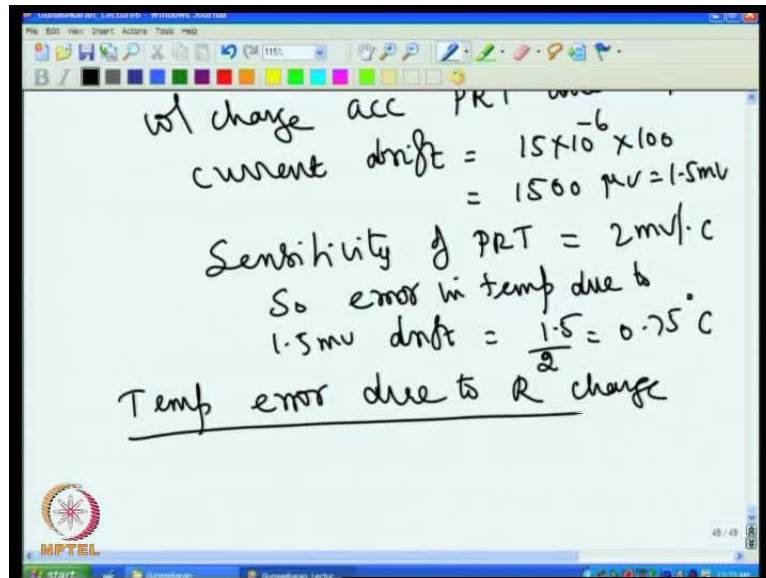 Gunasekaran_Lecture6 - Windows Journal
File Edit View Insert Actions Tools Help
115%
B I
vol change acc PRT
current drift = 15×10^-6 ×100
= 1500 μv = 1.5mv
Sensitivity of PRT = 2mv/°C
So error in temp due to
1.5mv drift = 1.5/2 = 0.75°C
Temp error due to R change
NPTEL
49 / 49
start
Gunasekaran
Gunasekaran_Lectur...